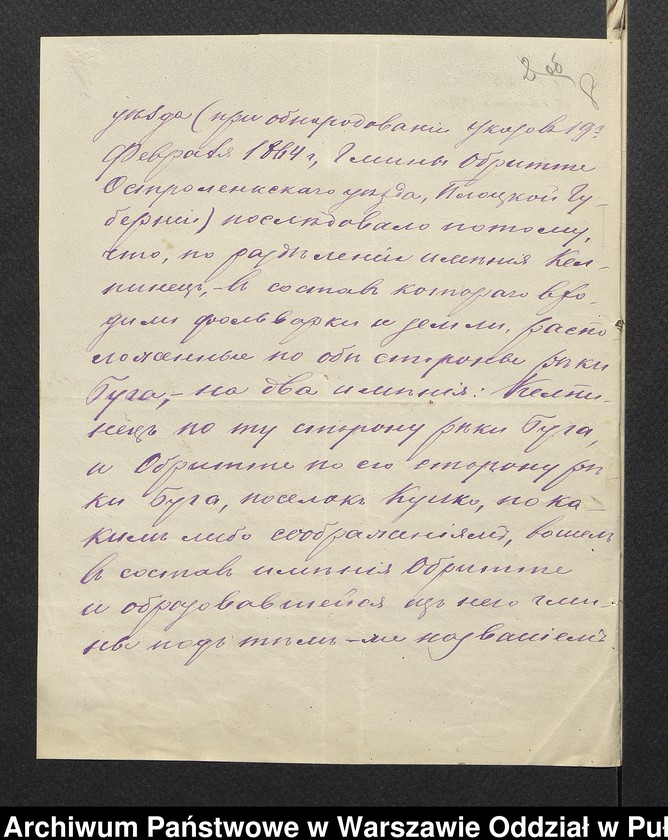 2 об
8
уѣзда (при обнародованіи указовъ 19го
Февраля 1864 г, Гмины Обритте
Остроленкскаго уѣзда, Плоцкой Гу-
берніи) послѣдовало потому,
что, по раздѣленіи имѣнія Кел-
пинецъ,- въ составъ котораго вхо-
дили фольварки и земли, распо
ложенные по обѣ стороны рѣки
Буга,- на два имѣнія: Келпи-
нецъ по ту сторону рѣки Буга,
и Обритте по сю сторону рѣ-
ки Буга, поселокъ Кулко, по ка-
кимъ либо соображаніямъ, вошелъ
въ составъ имѣнія Обритте
и образовавшейся изъ него гми-
ны подъ тѣмъ-же названіемъ
Archiwum Państwowe w Warszawie Oddział w Pu